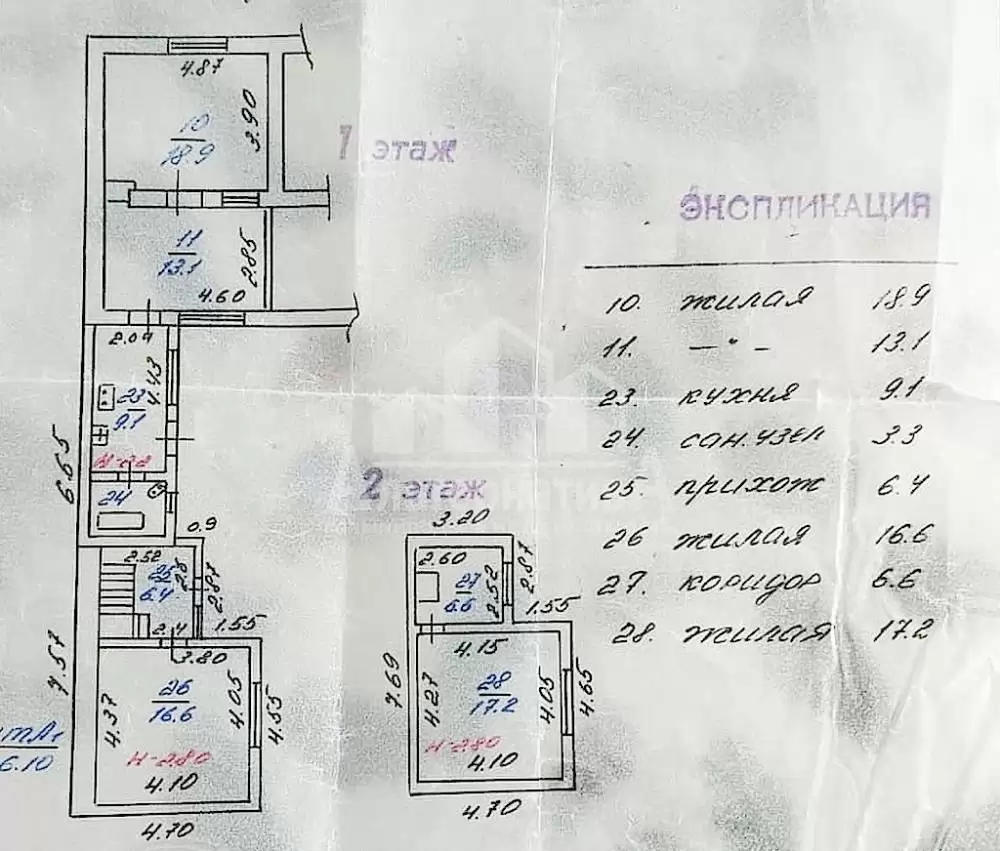 4.87
10
18.9
3.90
1 этаж
ЭКСПЛИКАЦИЯ
11
13.1
2.85
4.60
10. жилая 18.9
11. —"— 13.1
23. кухня 9.1
24. сан.узел 3.3
25. прихож 6.4
26 жилая 16.6
27. коридор 6.6
28. жилая 17.2
2.09
4.43
23
9.1
6.65
24
0.9
2.52
25
6.4
2.87
2.4
1.55
3.80
7.57
26
16.6
4.37
4.05
4.55
H-2.80
4.10
4.70
6.10
2 этаж
3.20
2.60
27
6.6
2.52
2.87
1.55
4.15
7.69
4.27
28
17.2
4.05
4.65
H-2.80
4.10
4.70